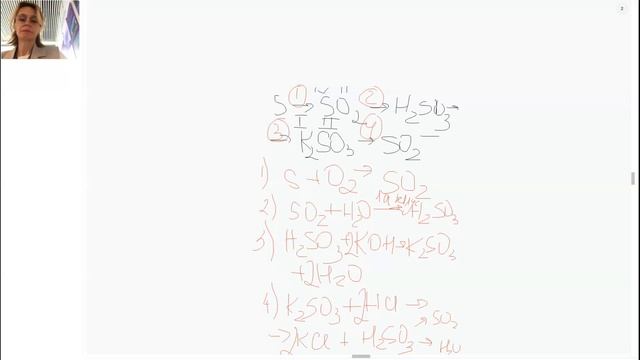 2
S → SO₂ → H₂SO₃ →
→ K₂SO₃ → SO₂
1) S + O₂ → SO₂
2) SO₂ + H₂O → H₂SO₃
3) H₂SO₃ + 2KOH → K₂SO₃
+ 2H₂O
4) K₂SO₃ + 2HCl →
→ 2KCl + H₂SO₃ → SO₂
H₂O